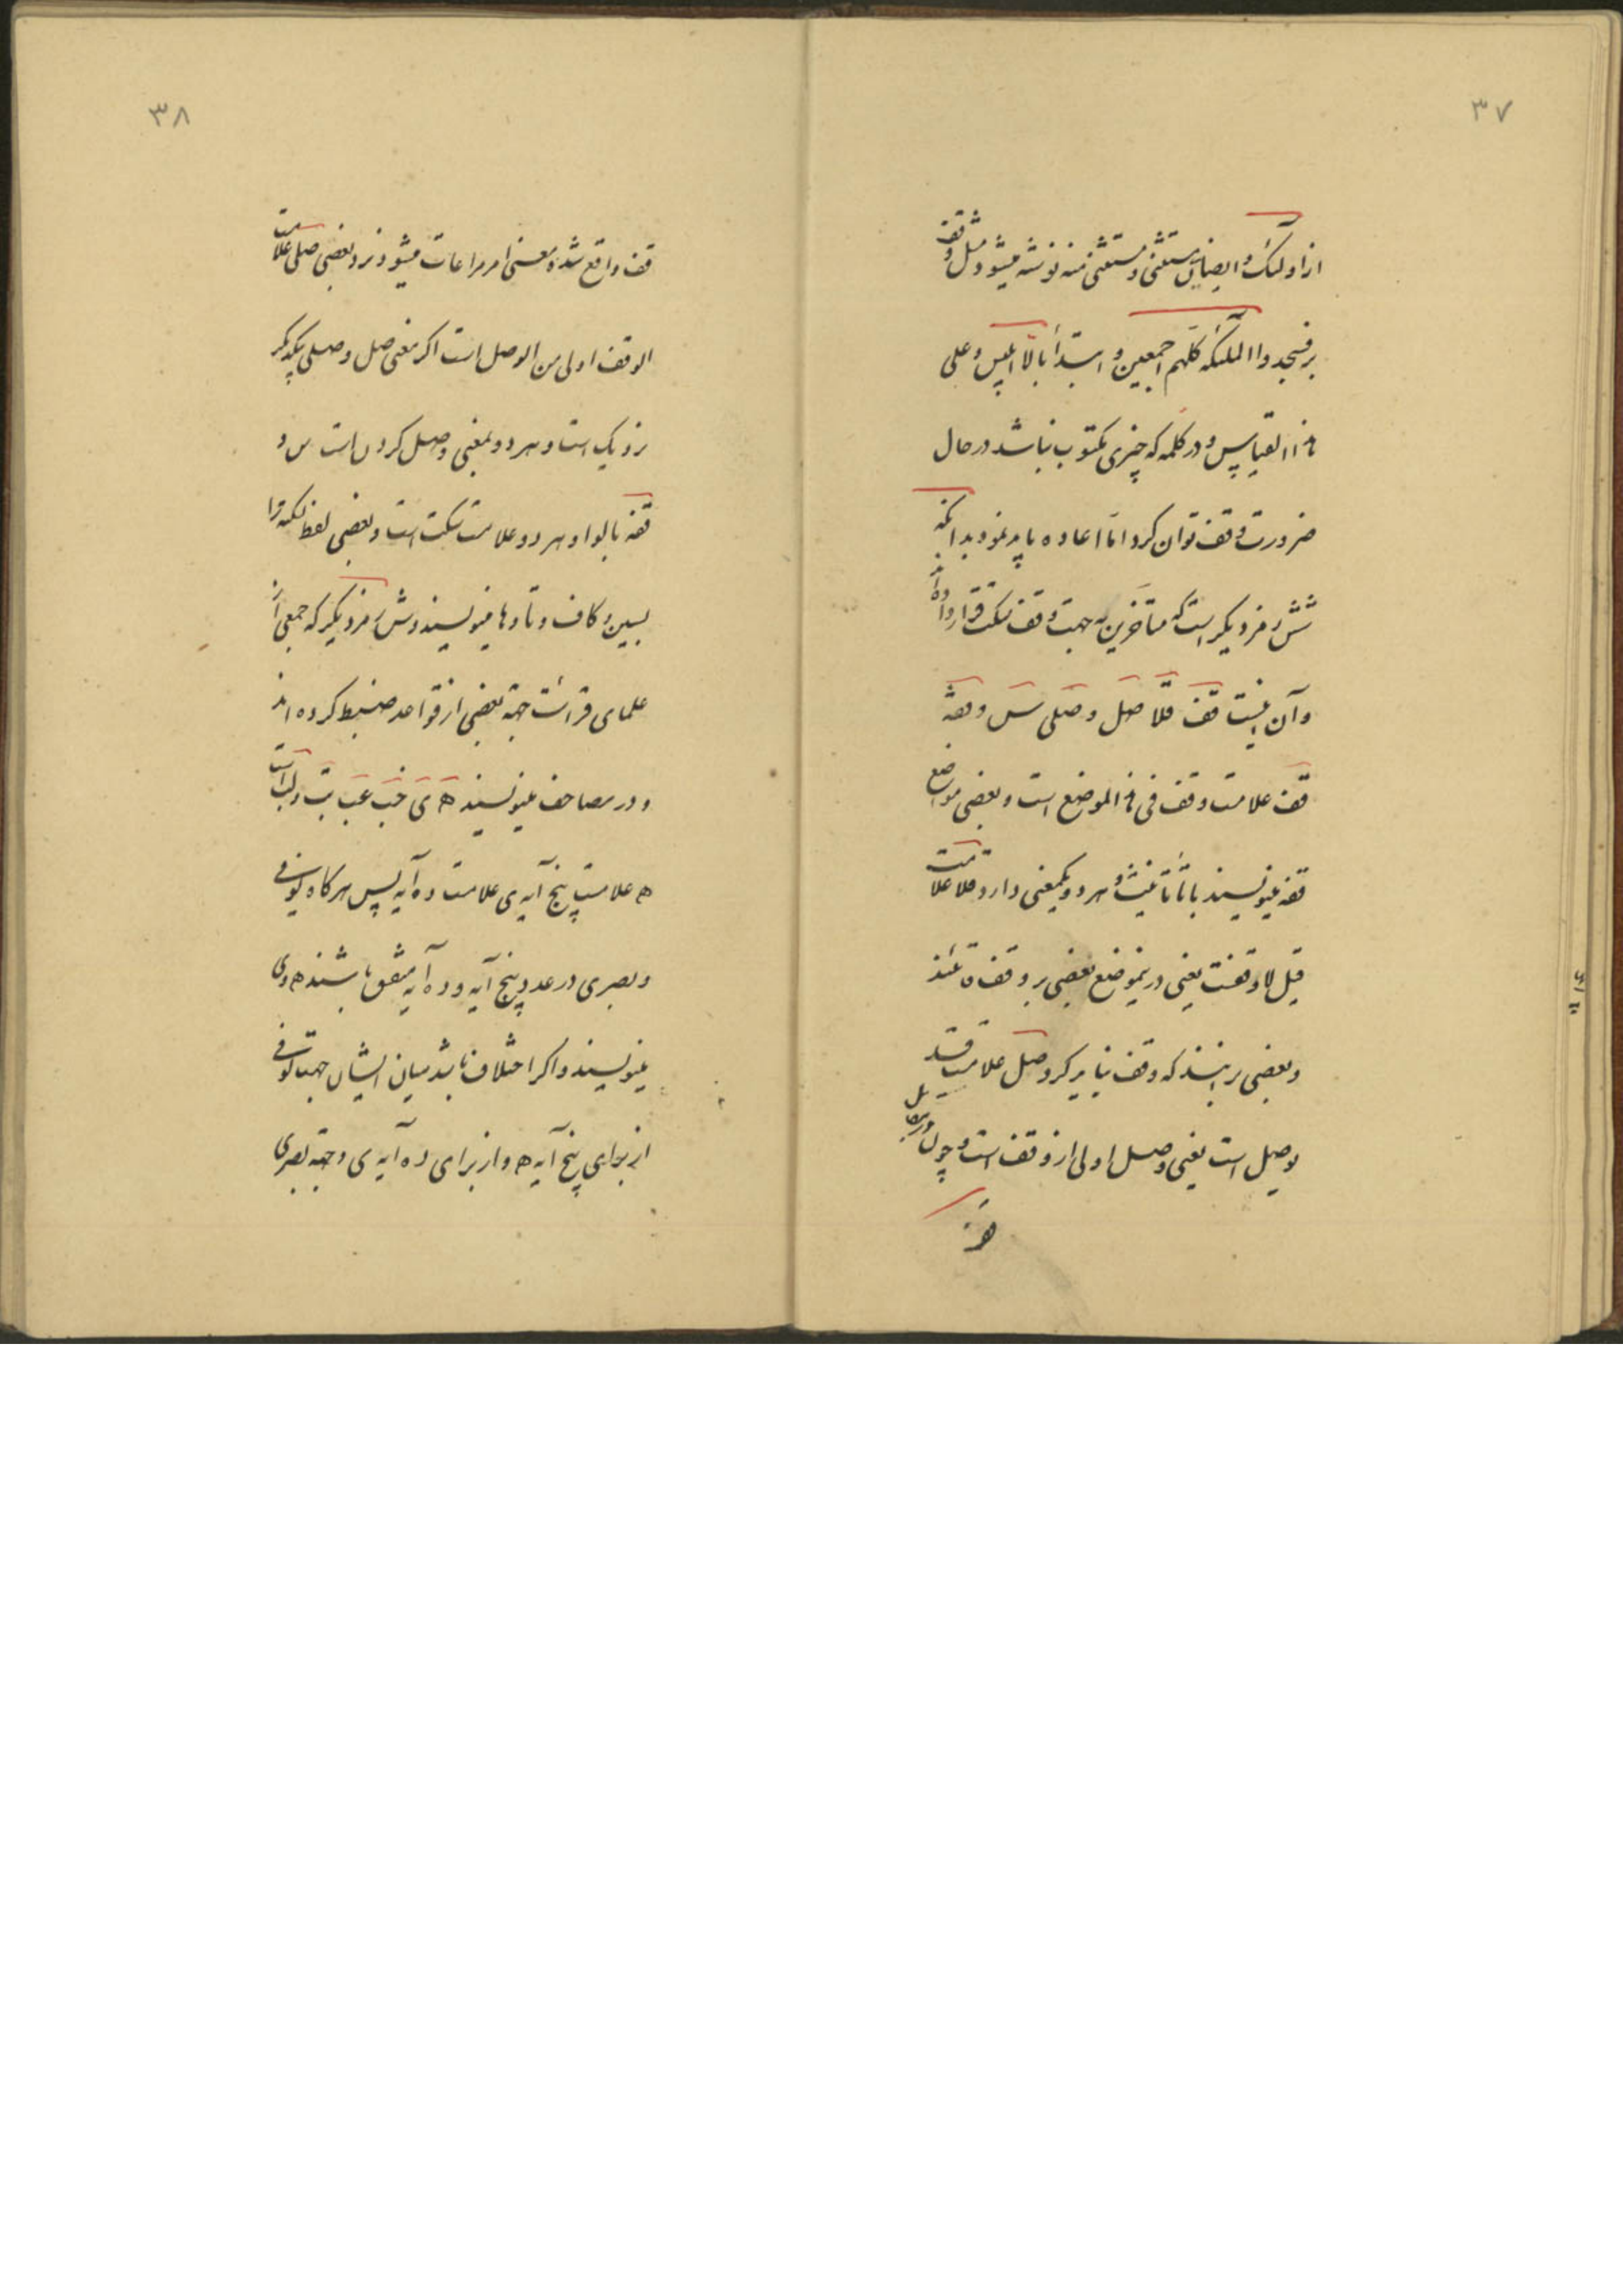 ۳۷
از اولئک و ایضا بین مستثنی و مستثنی منه نوشته میشود مثل وقف
بر فسجدوا الملئکة کلهم اجمعین و ابتدا بالا ابلیس و علی
هذا القیاس و در کلمه که چیزی مکتوب نباشد در حال
ضرورت وقف توان کرد اما اعاده باید نمود بدانکه
شش رمز دیگر است که متأخرین به جهت وقف و سکت قرار داده‌اند
و آن اینست قف قلا صل و صلی س وقفة
قف علامت وقف فی هذا الموضع است و بعضی مواضع
قفه مینویسند با تاء تأنیث و هر دو یکمعنی دارد قلا علامت
قیل لا وقفست یعنی درینموضع بعضی بر وقف قائلند
و بعضی برانند که وقف نباید کرد صل علامت قد
یوصل است یعنی وصل اولی از وقف است و چون در مقابل
قف
۳۸
قف واقع شده معنی امر مراعات میشود و نزد بعضی صلی علامت
الوقف اولی من الوصل است اگر معنی صل و صلی بیکدیگر
نزدیک است و هر دو بمعنی وصل کردن است س و
قفه بالواو هر دو علامت سکت است و بعضی لفظ سکته را
بسین و کاف و تا و ها مینویسند و شش رمز دیگر که جمعی از
علمای قرائت جهة بعضی از قواعد ضبط کرده‌اند
و در مصاحف مینویسند ه ی خب عب تب و لب است
ه علامت پنج آیه ی علامت ده آیه پس هرگاه کوفی
و بصری در عدد پنج آیه و ده آیه متفق باشند ه و ی
مینویسند و اگر اختلاف باشد میان ایشان جهت کوفی
از برای پنج آیه ه و از برای ده آیه ی و جهة بصری